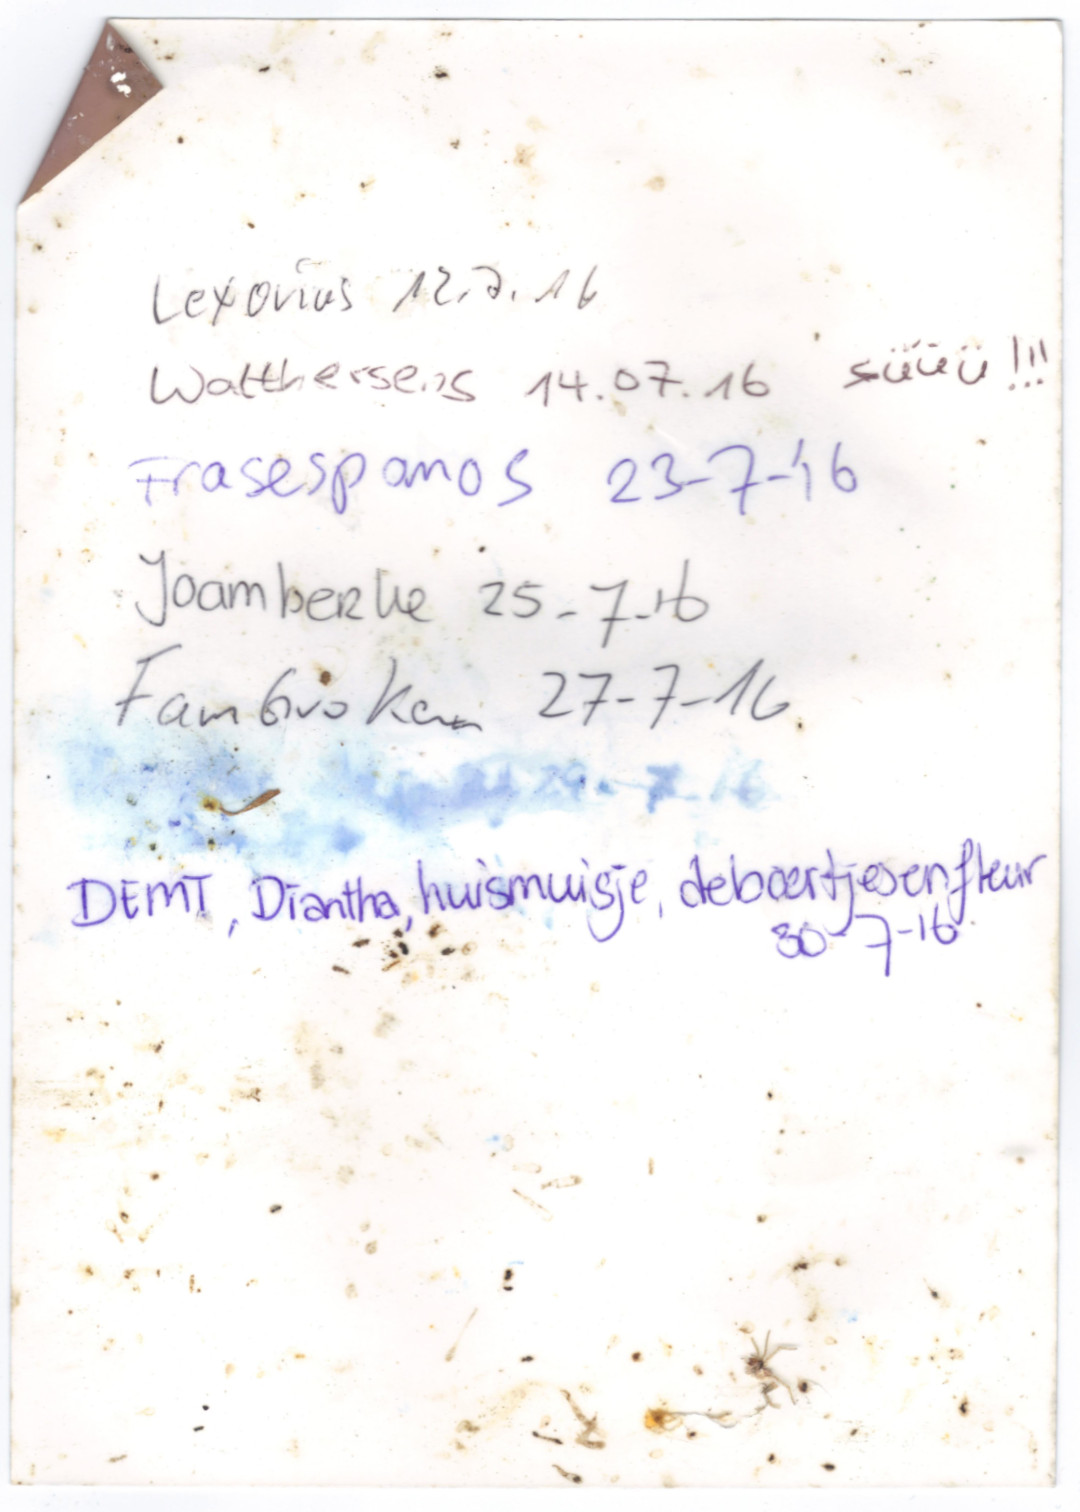 Lexovius 12.7.16
Walthersens 14.07.16 süüüü!!!
Frasespanos 23-7-'16
Joamberlie 25-7-16
27-7-16
29-7-16
DEMT, Diantha, huismuisje, deboertjesenfleur
30-7-16